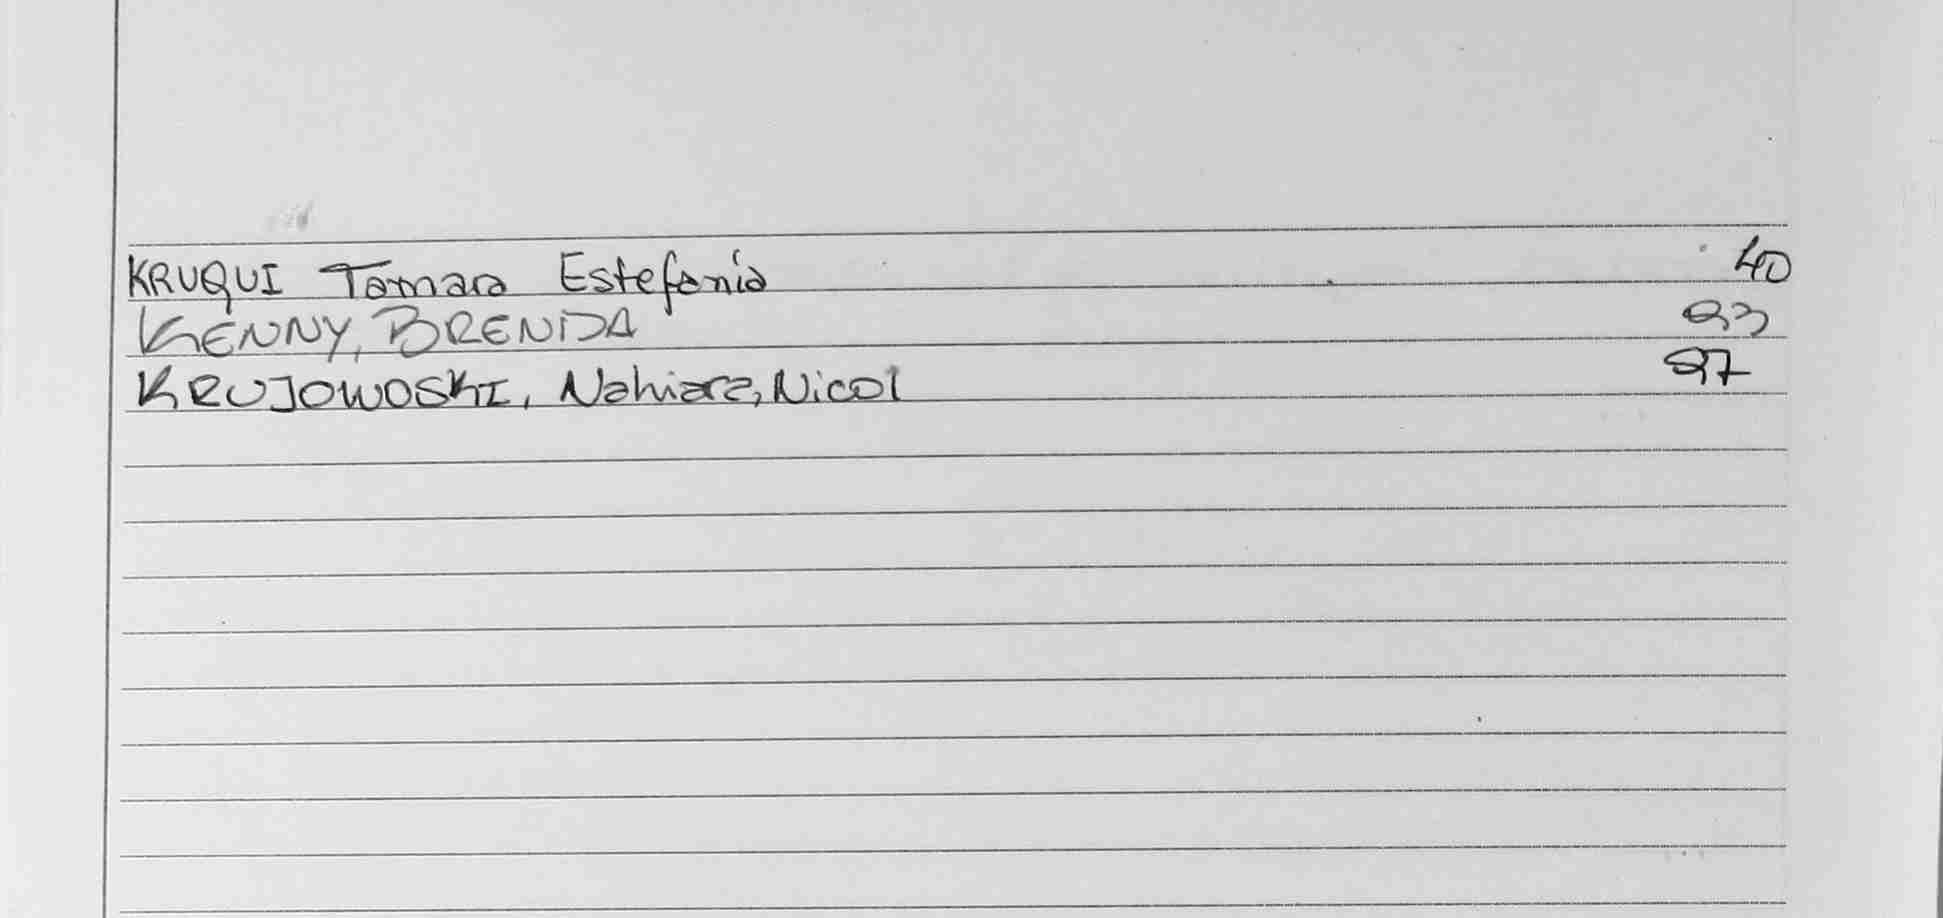 KRUQUI Tamara Estefania 40
KENNY, BRENDA 93
KRUJOWOSKI, Nahiara, Nicol 97